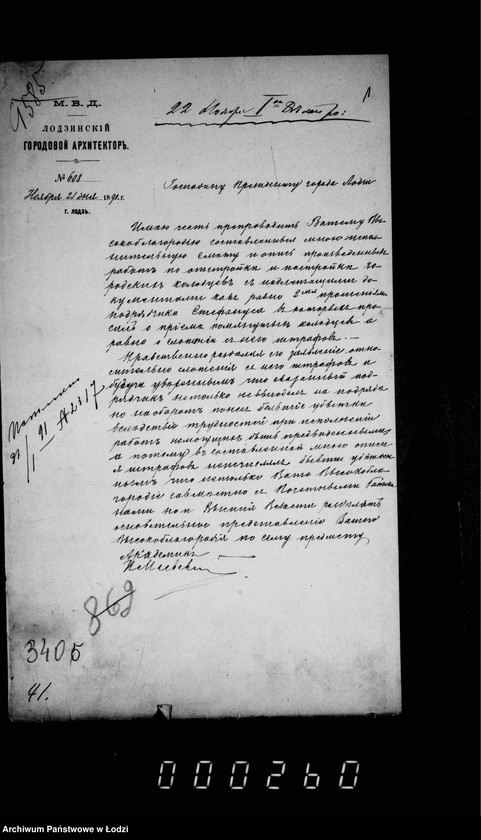 9585
М. В. Д.
ЛОДЗИНСКІЙ
ГОРОДОВОЙ АРХИТЕКТОРЪ.
№ 608
Ноября 21 дня 1890 г.
г. ЛОДЗЬ.
22 Ноября I
Господину Президенту города Лодзи
Имѣю честь препроводить Вашему Вы-
сокоблагородію составленныя мною
смѣту и опись произведенныхъ
работъ по отстройкѣ и постройкѣ го-
родскихъ колодцевъ съ надлежащими до-
кументами какъ равно 2мя прошеніями
подрядчика Стефануса въ которыхъ про-
ситъ о пріемѣ помянутыхъ колодцевъ а
равно о сложеніи съ него штрафовъ. —
его заявленіе отно-
сительно сложенія съ него штрафовъ и
будучи увѣреннымъ что сказанный под-
рядчикъ не только на подрядѣ
но наоборотъ понесъ убытки
вслѣдствіе трудностей при исполненіи
работъ немогущихъ быть предвидѣнными
а потому въ составленной мною описи
я штрафовъ
что не только Ваше Высокобла-
городіе совмѣстно съ Почетными
но и Высшія Власти
основательное представленіе Вашего
Высокоблагородія по сему предмету
Академикъ
Маевскій
91 № 2317
862
3405
41.
000260
Archiwum Państwowe w Łodzi